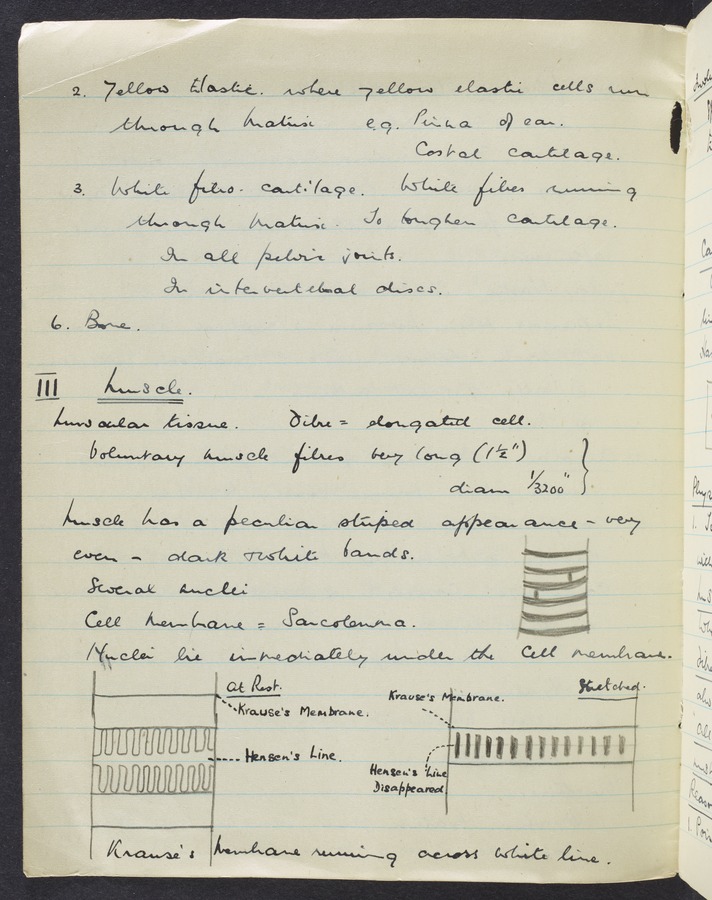 2. Yellow Elastic. where yellow elastic cells run
through matrix e.g. Pinna of ear.
Costal cartilage.
3. White fibro-cartilage. White fibres running
through matrix. To toughen cartilage.
In all pelvic joints.
In intervertebral discs.
6. Bone.
III Muscle.
Muscular tissue. Fibre = elongated cell.
Voluntary muscle fibres very long (1½")
diam 1/3200"
Muscle has a peculiar striped appearance - very
even - dark & white bands.
Several nuclei
Cell membrane = Sarcolemma.
Nuclei lie immediately under the cell membrane.
At Rest.
Krause's Membrane.
Hensen's Line.
Stretched.
Krause's Membrane.
Hensen's Line
Disappeared
Krause's membrane running across white line.